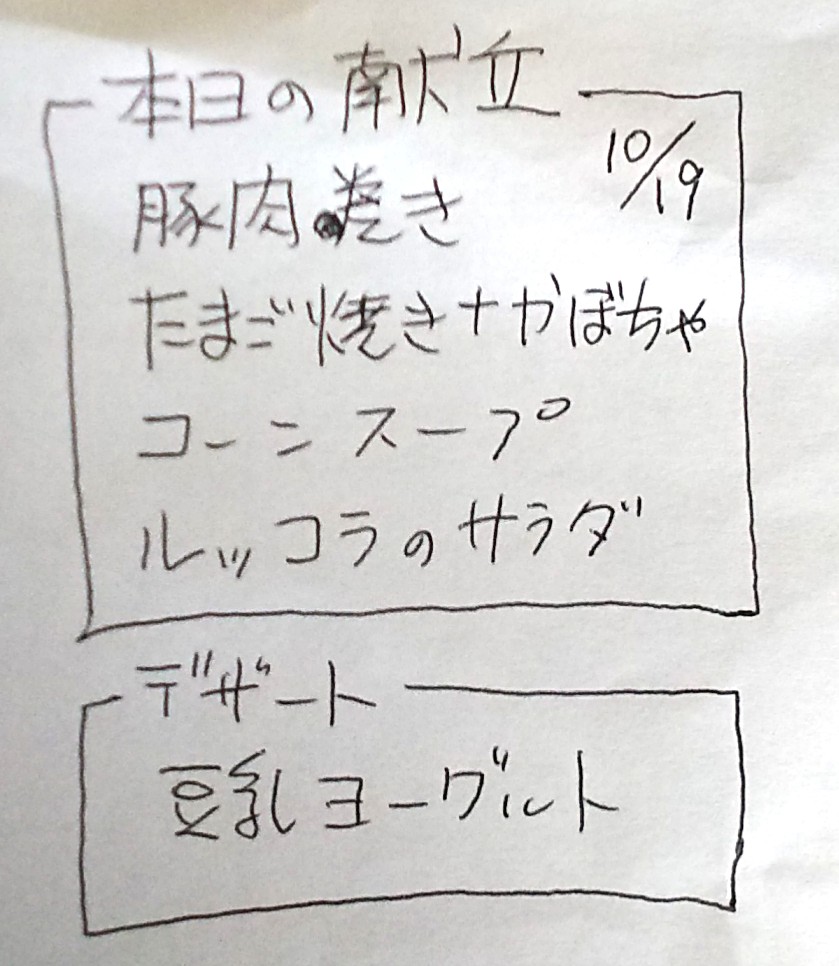 本日の献立
10/19
豚肉巻き
たまご焼き+かぼちゃ
コーンスープ
ルッコラのサラダ
デザート
豆乳ヨーグルト